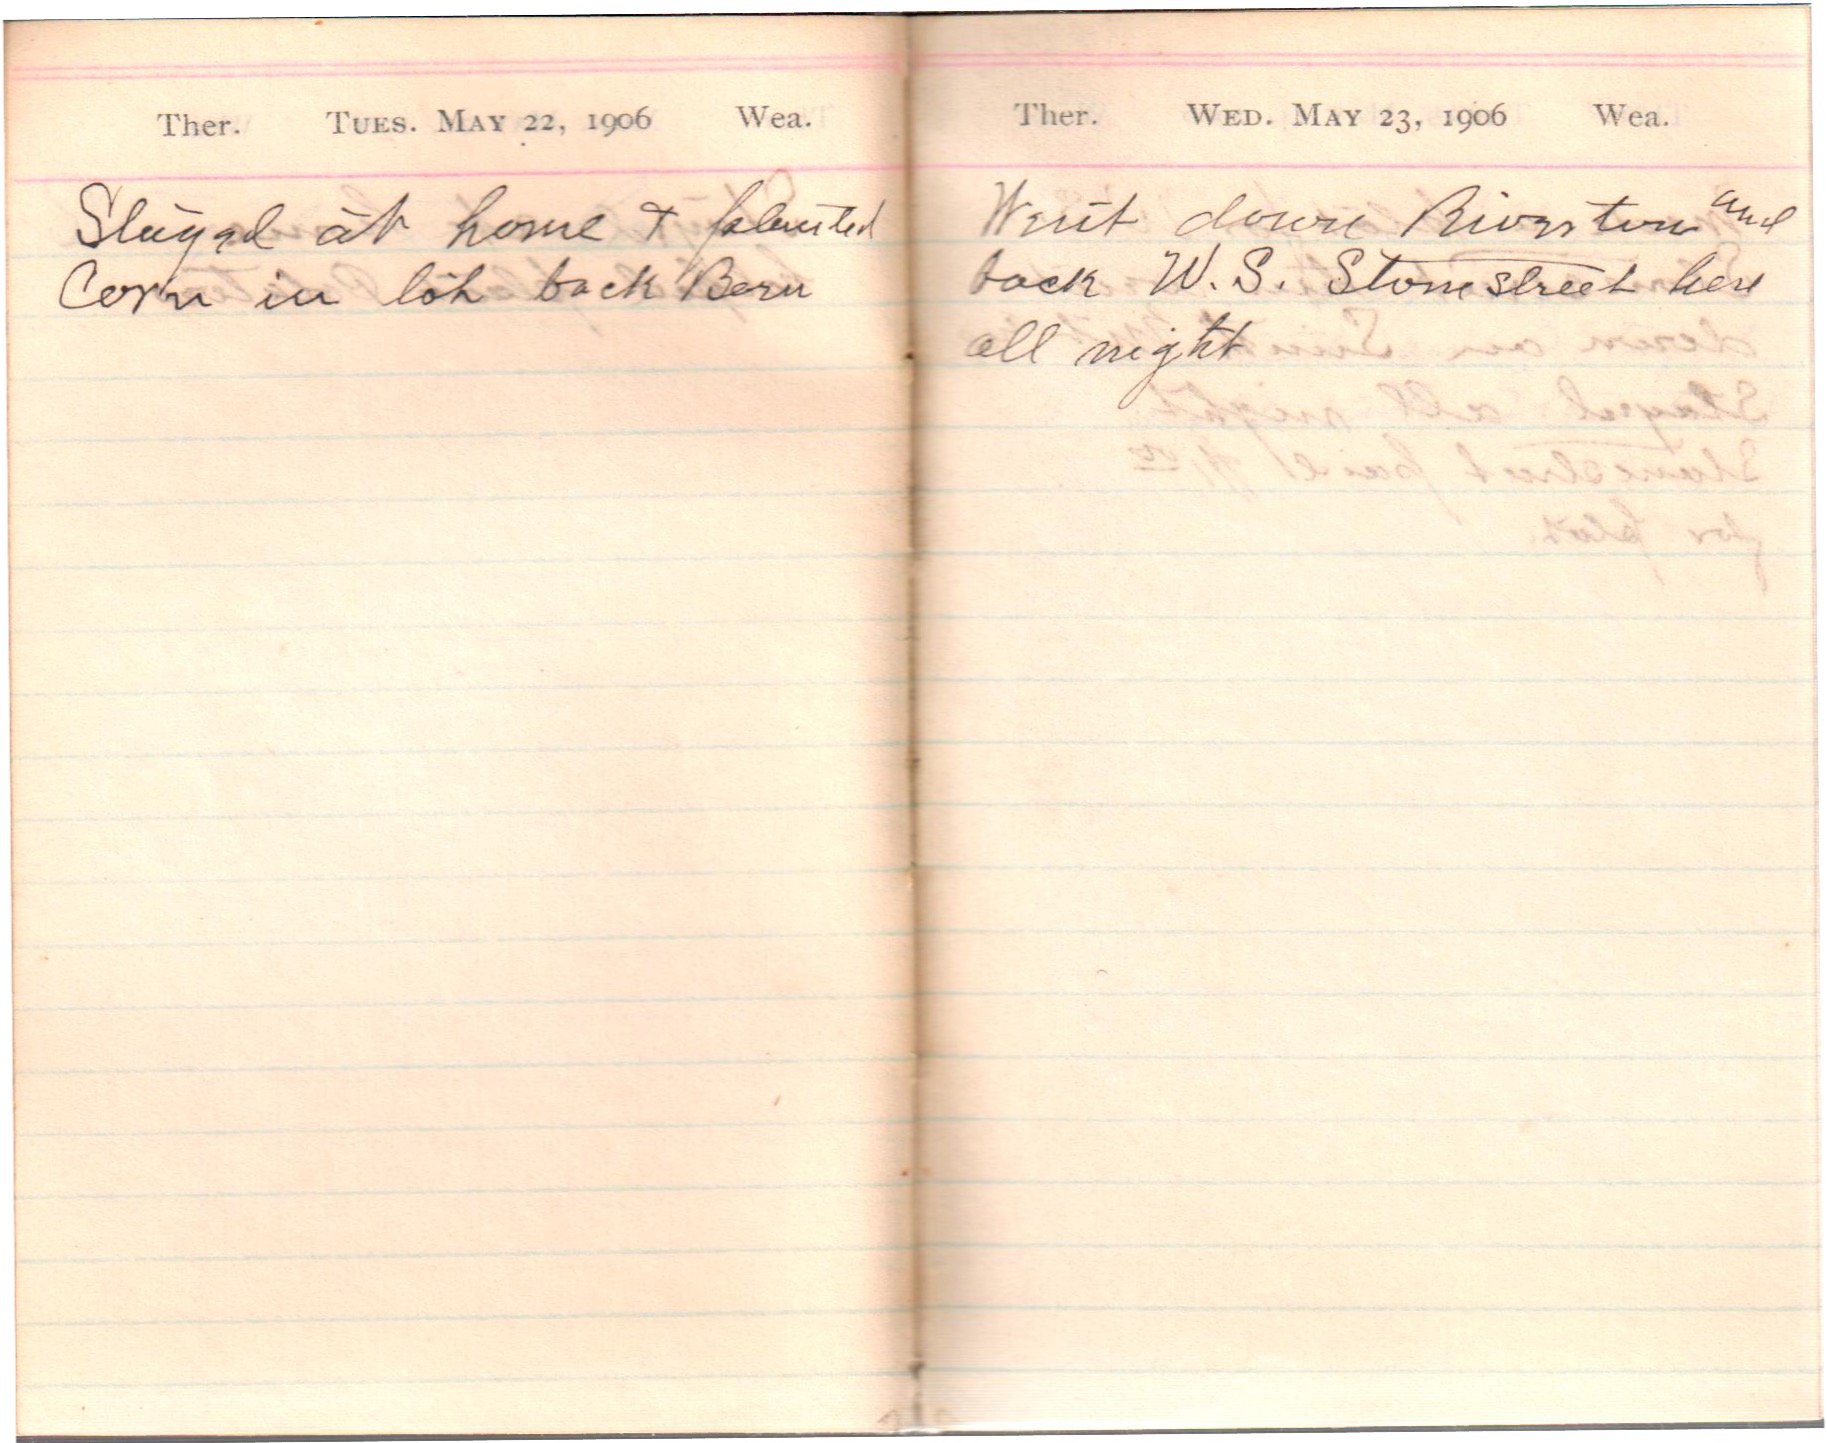 Ther. TUES. MAY 22, 1906 Wea.
Stayed at home & planted
Corn in lot back Barn
Ther. WED. MAY 23, 1906 Wea.
Went down Riverton and
back W.S. Stonestreet here
all night